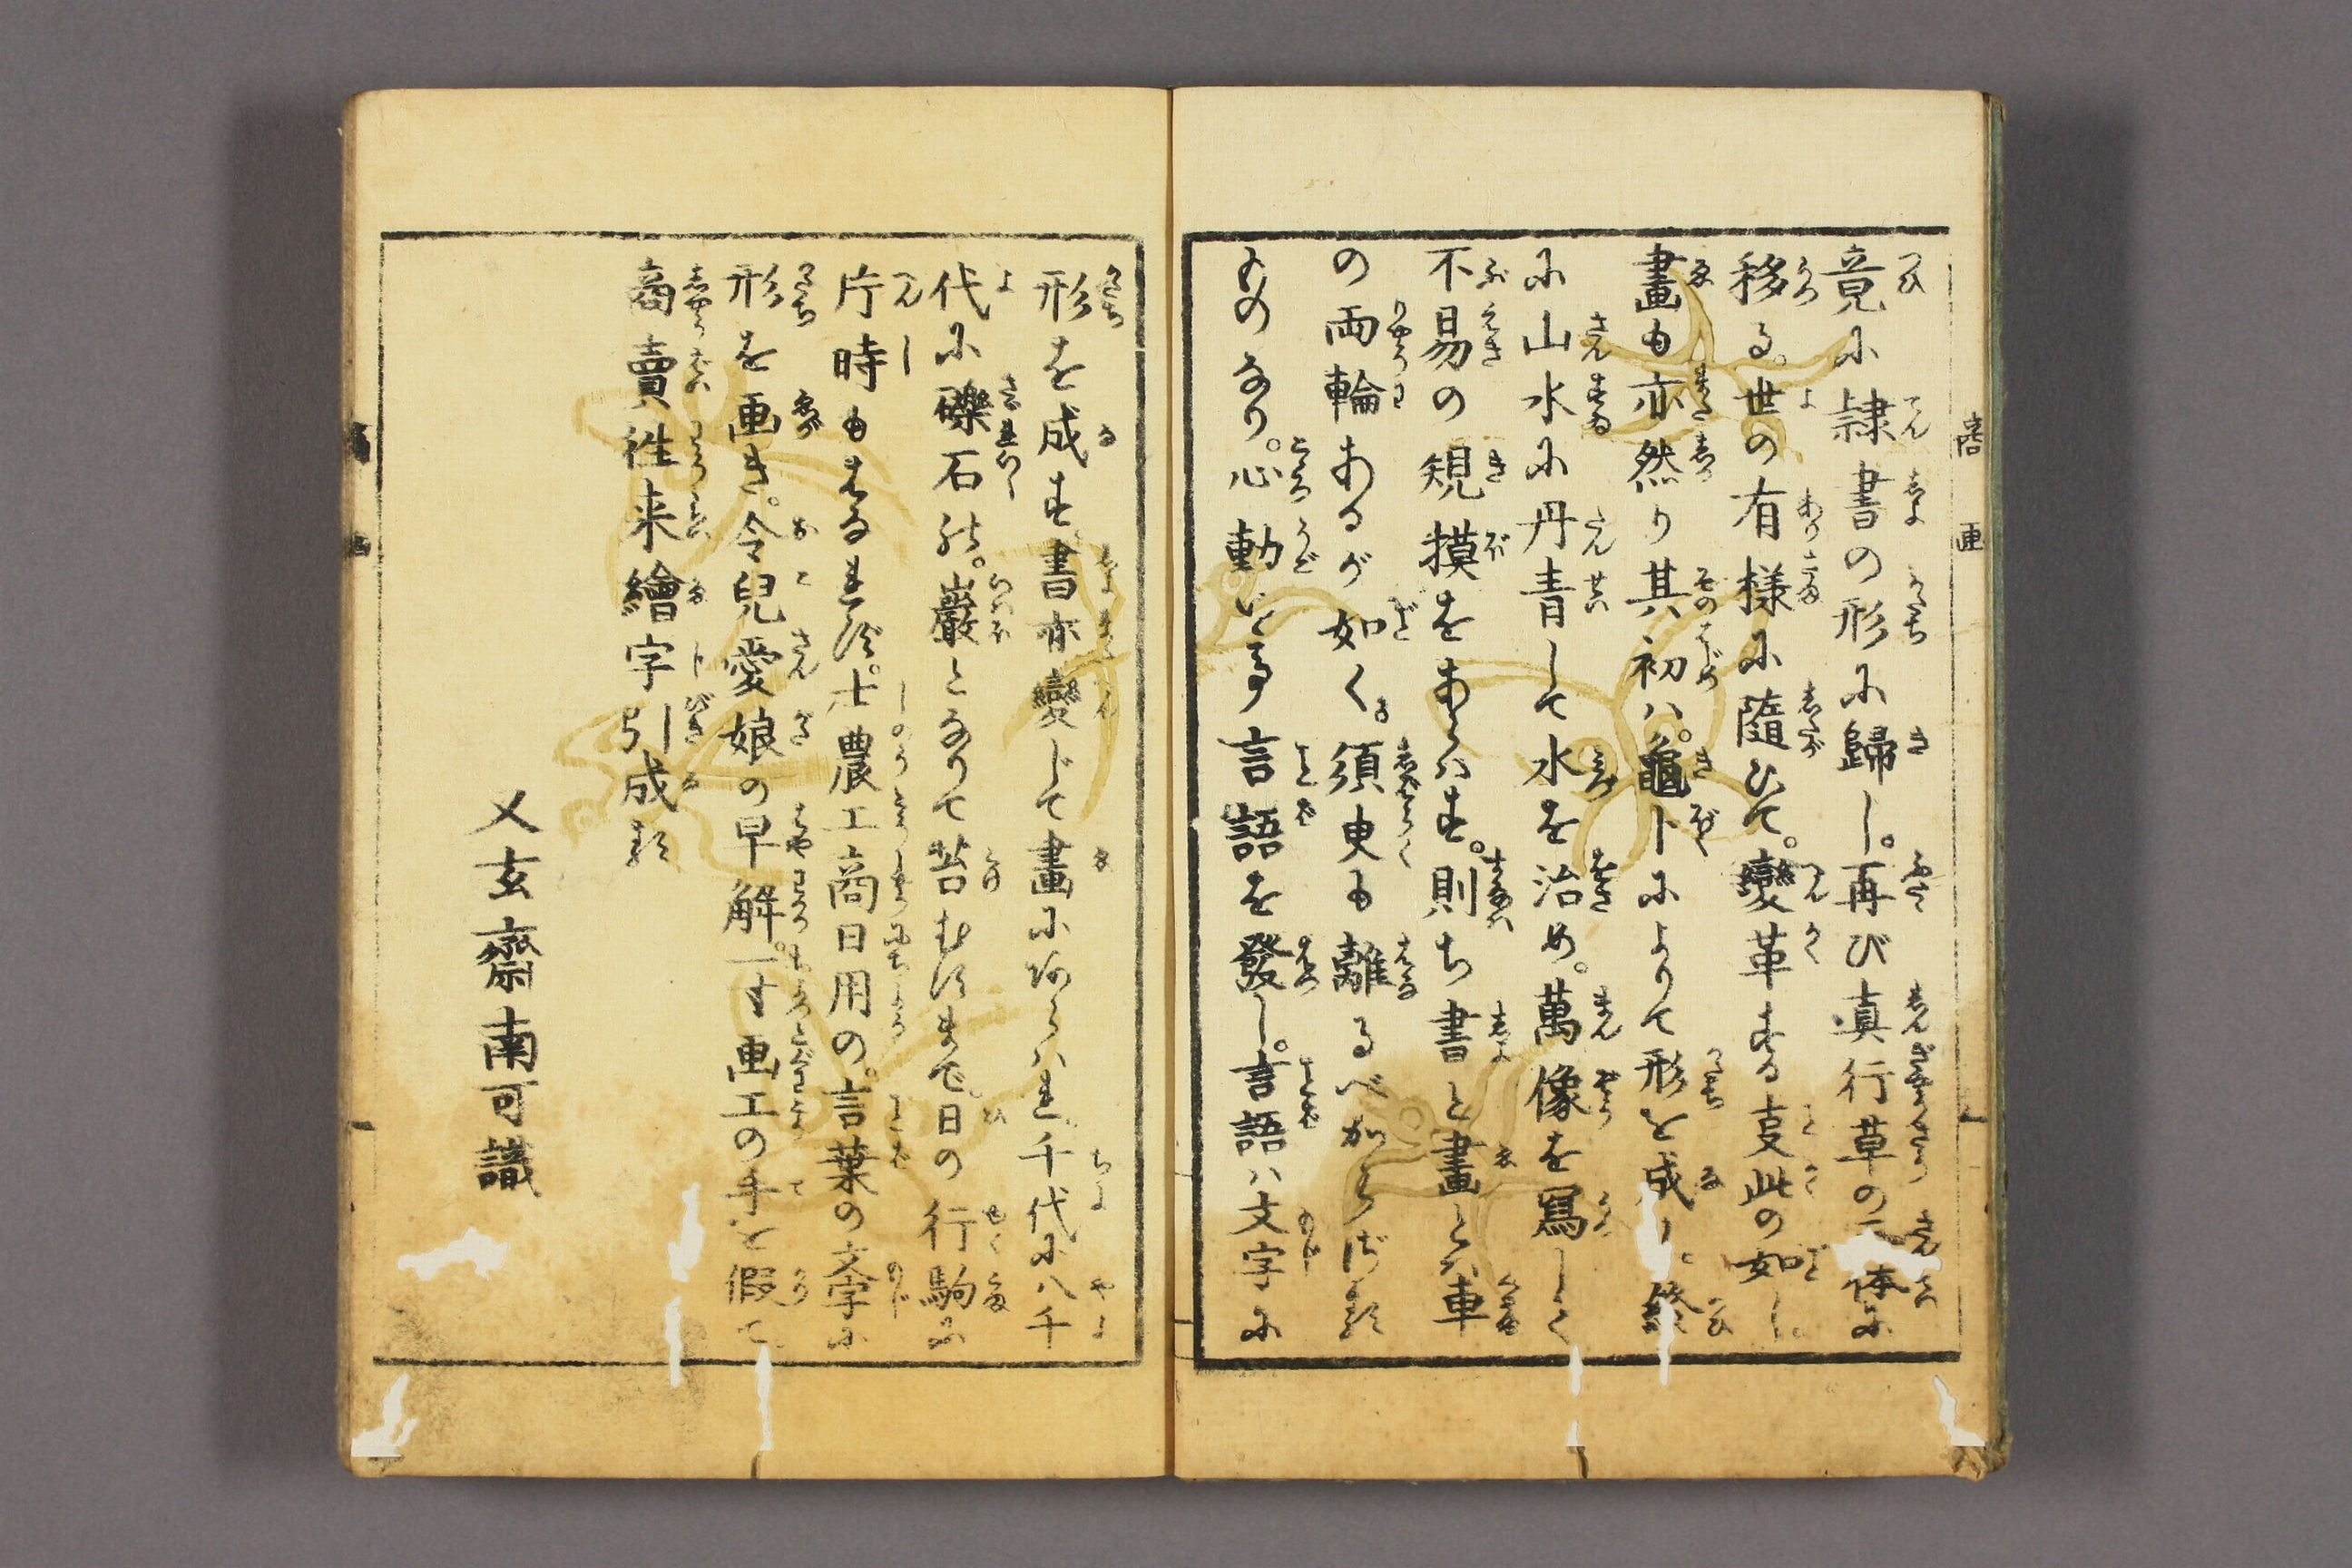 竟に隷書の形に歸し。再び真行草の三体に
移る。世の有様に隨ひて。變革する支此の如し。
畫も亦然り其初ハ。龜卜によりて形を成し。終
に山水に丹青して水を治め。萬像を寫して
不易の規摸をあらハす。則ち書と畫とハ車
の両輪あるが如く。須臾も離るべからず既
ものなり。心動いて言語を發し。言語ハ文字に
形を成す。書亦變じて畫にあらハれ。千代に八千
代に礫石の。巖となりて苔むすまで。日の行駒の
片時もはなれず。士農工商日用の。言葉の文字に
形を画き。令兒愛娘の早解。一寸画工の手を假て
商賣往来繪字引成
又玄齋南可識
商画